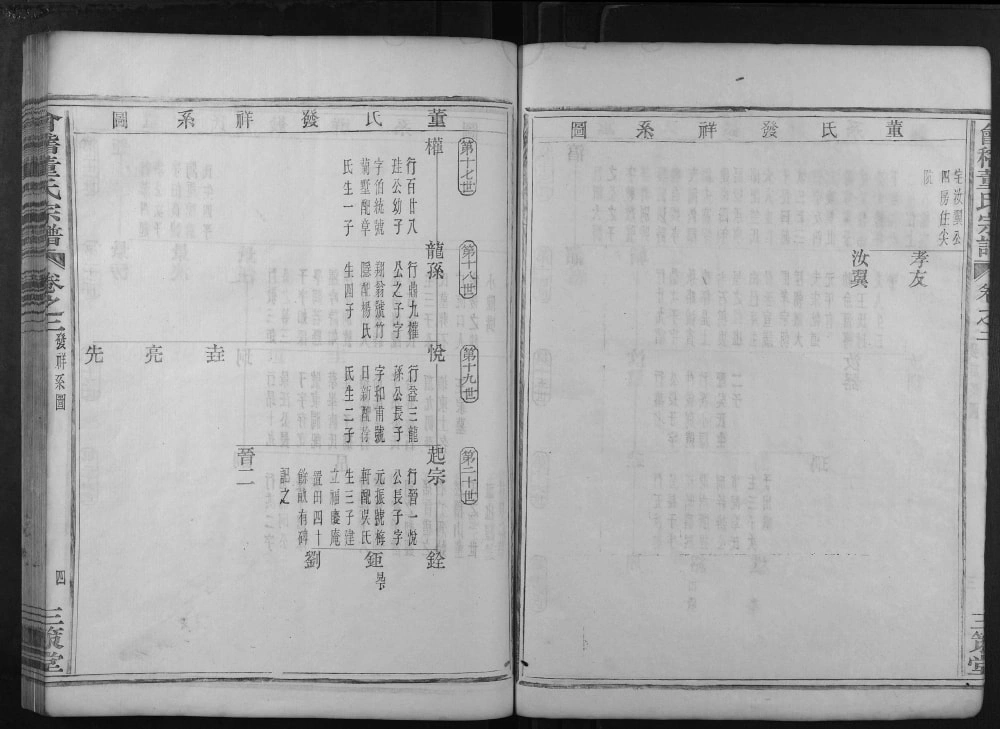 董氏發祥系圖
宅汝翼公
四房住尖
孝友
汝翼
董氏發祥系圖
第十七世
權
行百廿八
珪公幼子
字伯統號
蘭墅配章
氏生一子
第十八世
龍孫
行鼎九權
公之子字
翔翁號竹
隱配楊氏
生四子
第十九世
悅
行益三龍
孫公長子
字和甫號
日新配徐
氏生二子
垚
亮
先
第二十世
起宗
行晉一悅
公長子字
元振號梅
軒配吳氏
生三子建
立福慶庵
置田四十
餘畝有碑
記之
晉二
銓
鉅
劉
會稽董氏宗譜
卷之三
發祥系圖
四
三策堂